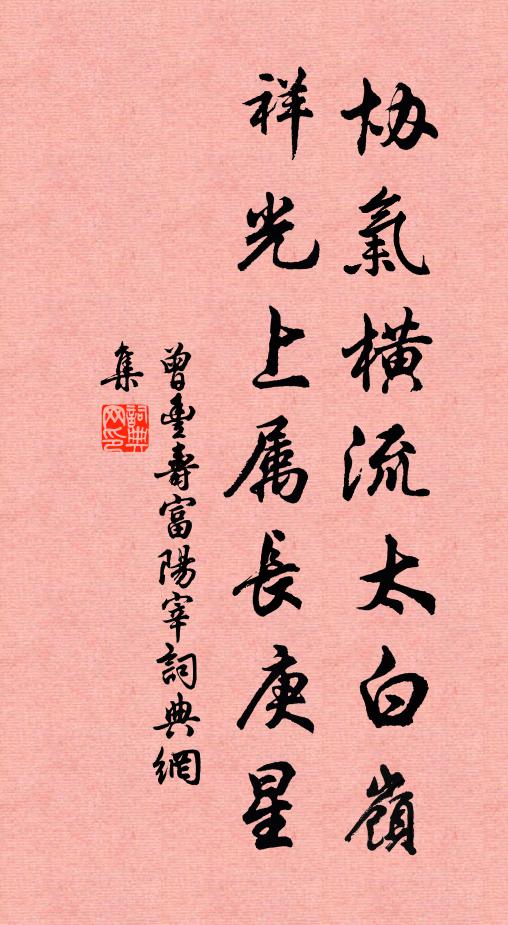 協氣橫流太白嶺
祥光上属長庚星
曾豐壽富陽宰詞典網
集
詞典网印